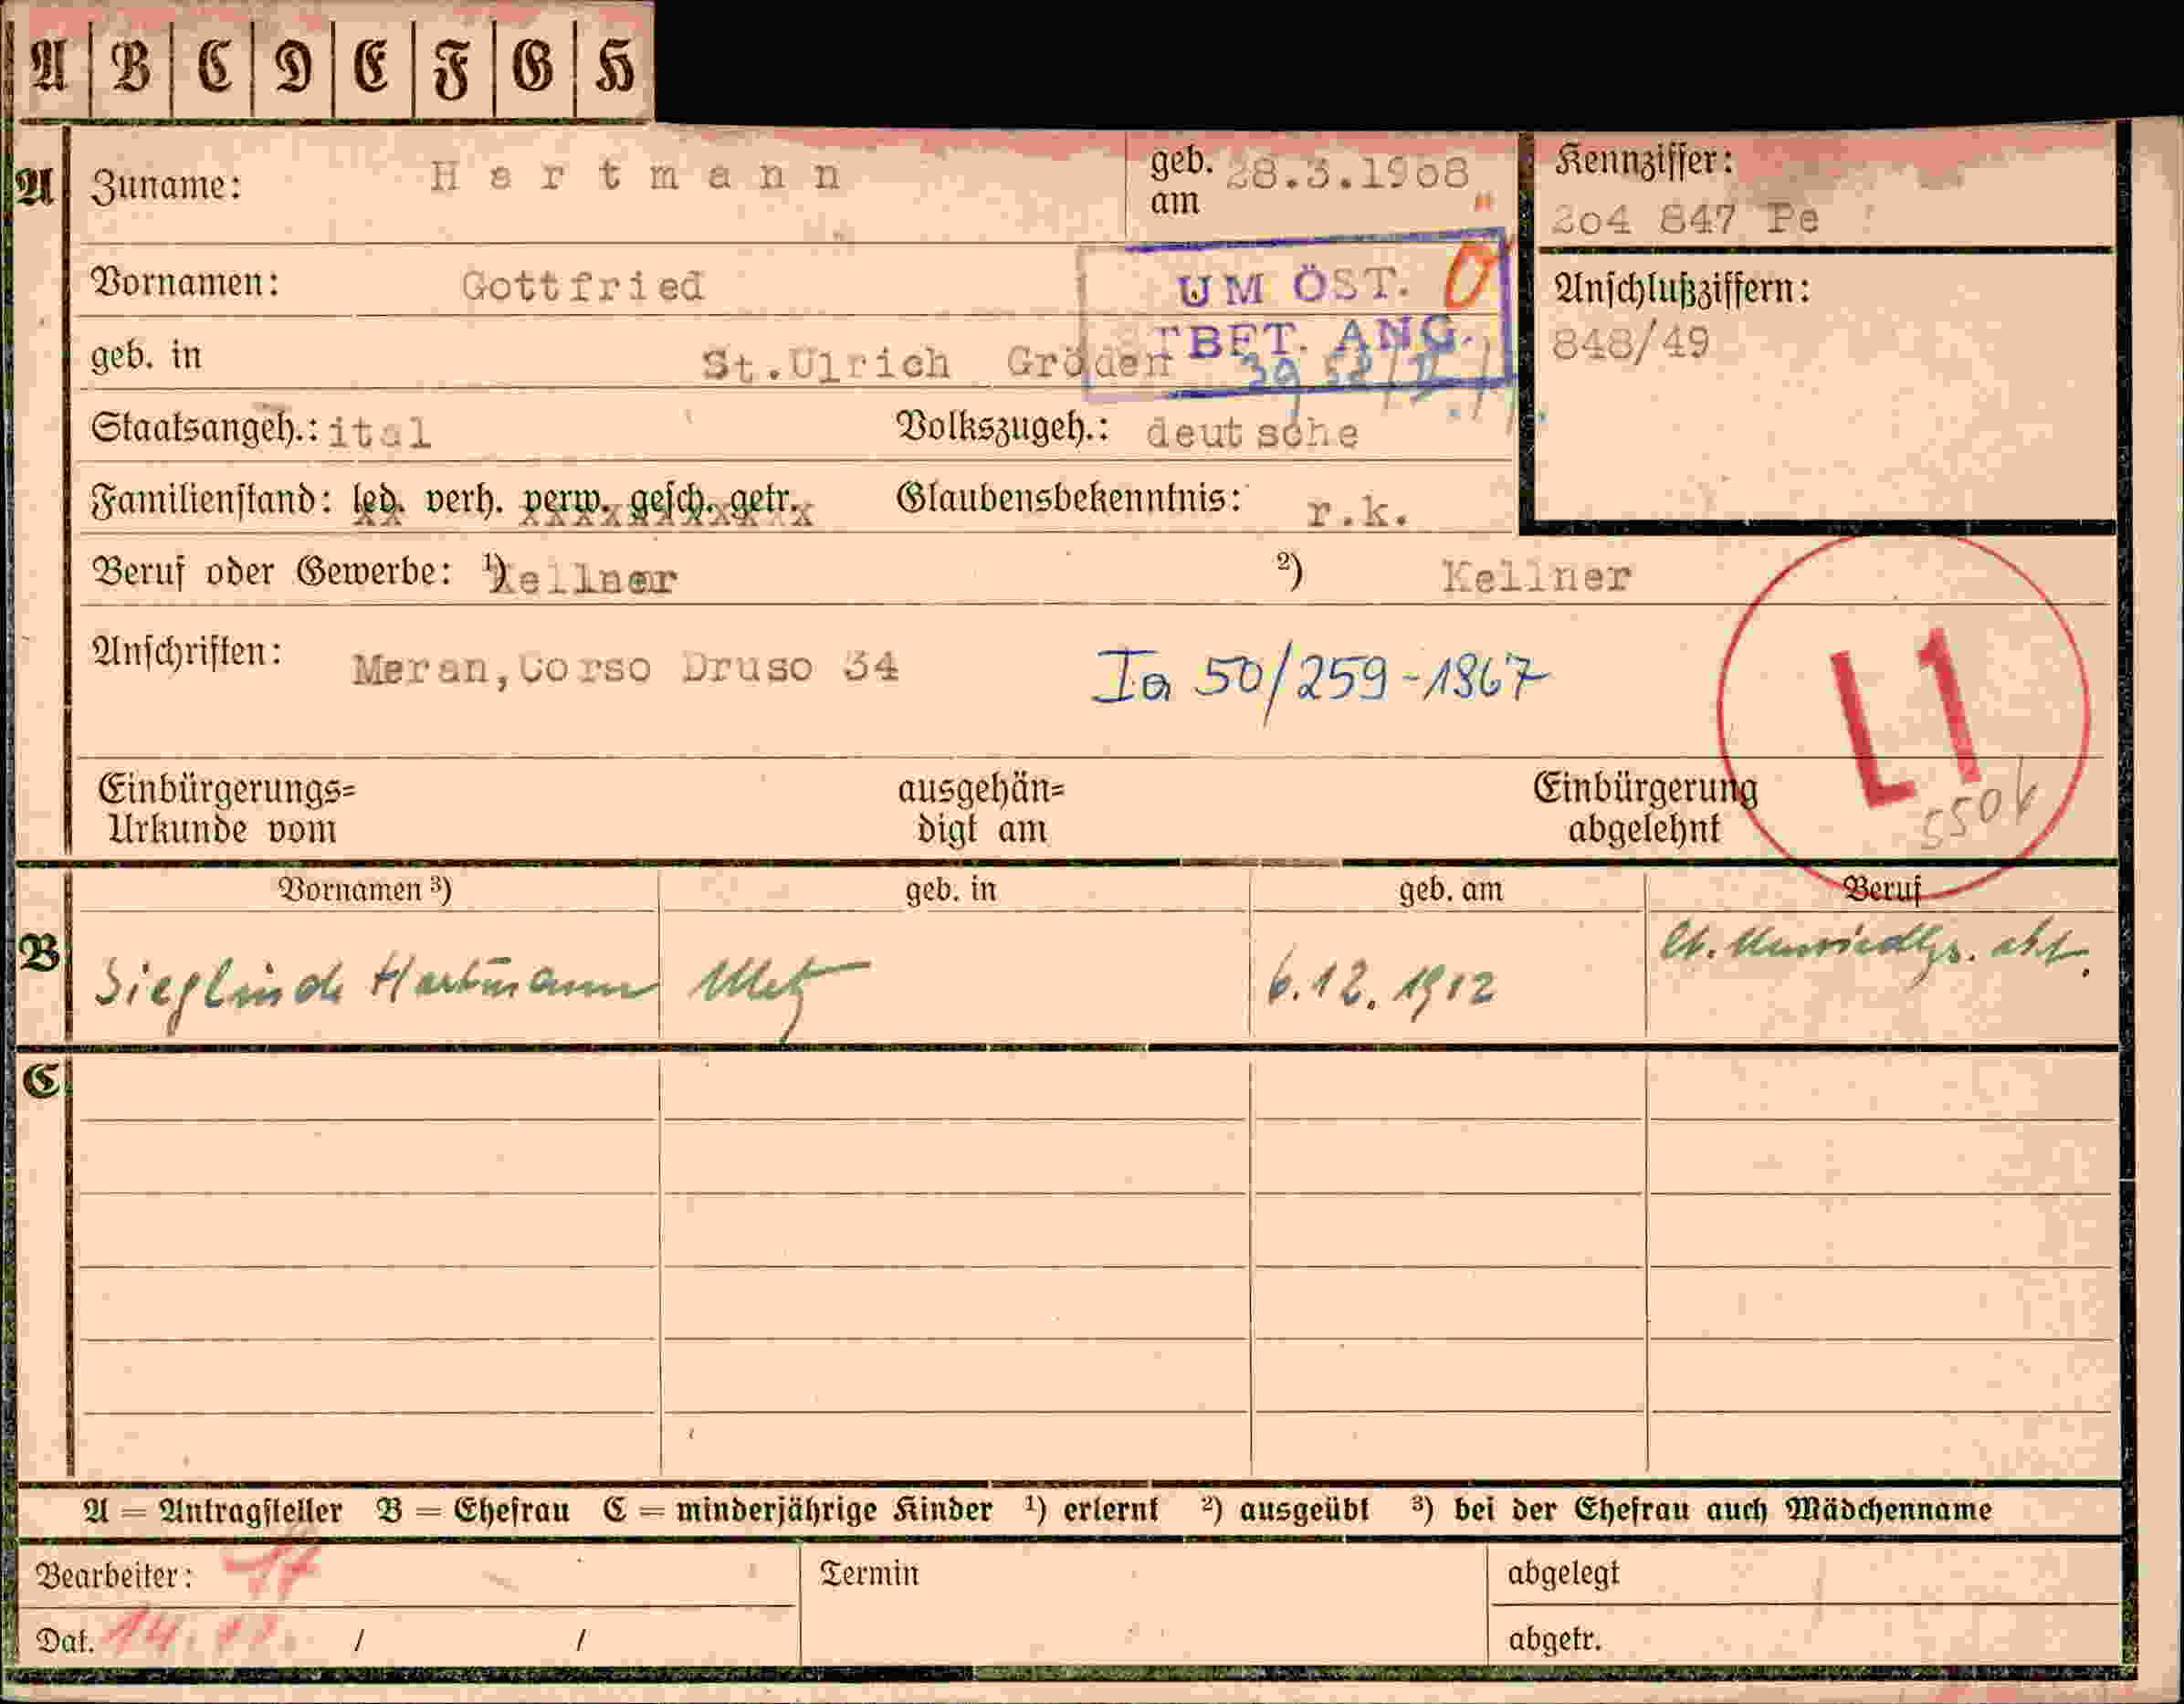 A B C D E F G H
A Zuname: Hartmann geb. am 28.3.1908 Kennziffer:
204 847 Pe
Vornamen: Gottfried UM ÖST. O Anschlußziffern:
geb. in St.Ulrich Gröden TBET. ANG. 848/49
Staatsangeh.: ital Volkszugeh.: deutsche
Familienstand: led. verh. verw. gesch. getr. Glaubensbekenntnis: r.k.
Beruf oder Gewerbe: 1) Kellner 2) Kellner
Anschriften: Meran,Corso Druso 34 Ia 50/259-1867 L1
Einbürgerungs= ausgehän= Einbürgerung
Urkunde vom digt am abgelehnt
Vornamen 3) geb. in geb. am Beruf
B Sieglinde Hartmann Metz 6.12.1912
C
A = Antragsteller B = Ehefrau C = minderjährige Kinder 1) erlernt 2) ausgeübt 3) bei der Ehefrau auch Mädchenname
Bearbeiter: Termin abgelegt
Dat. / / abgetr.